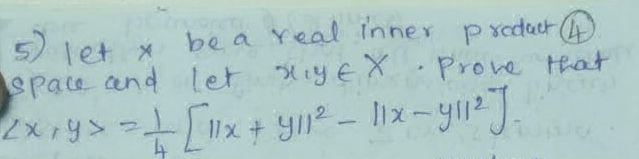 5) let x be a real inner product ④
space and let x,y ∈ X . Prove that
<x,y> = 1/4 [||x + y||² - ||x-y||²].